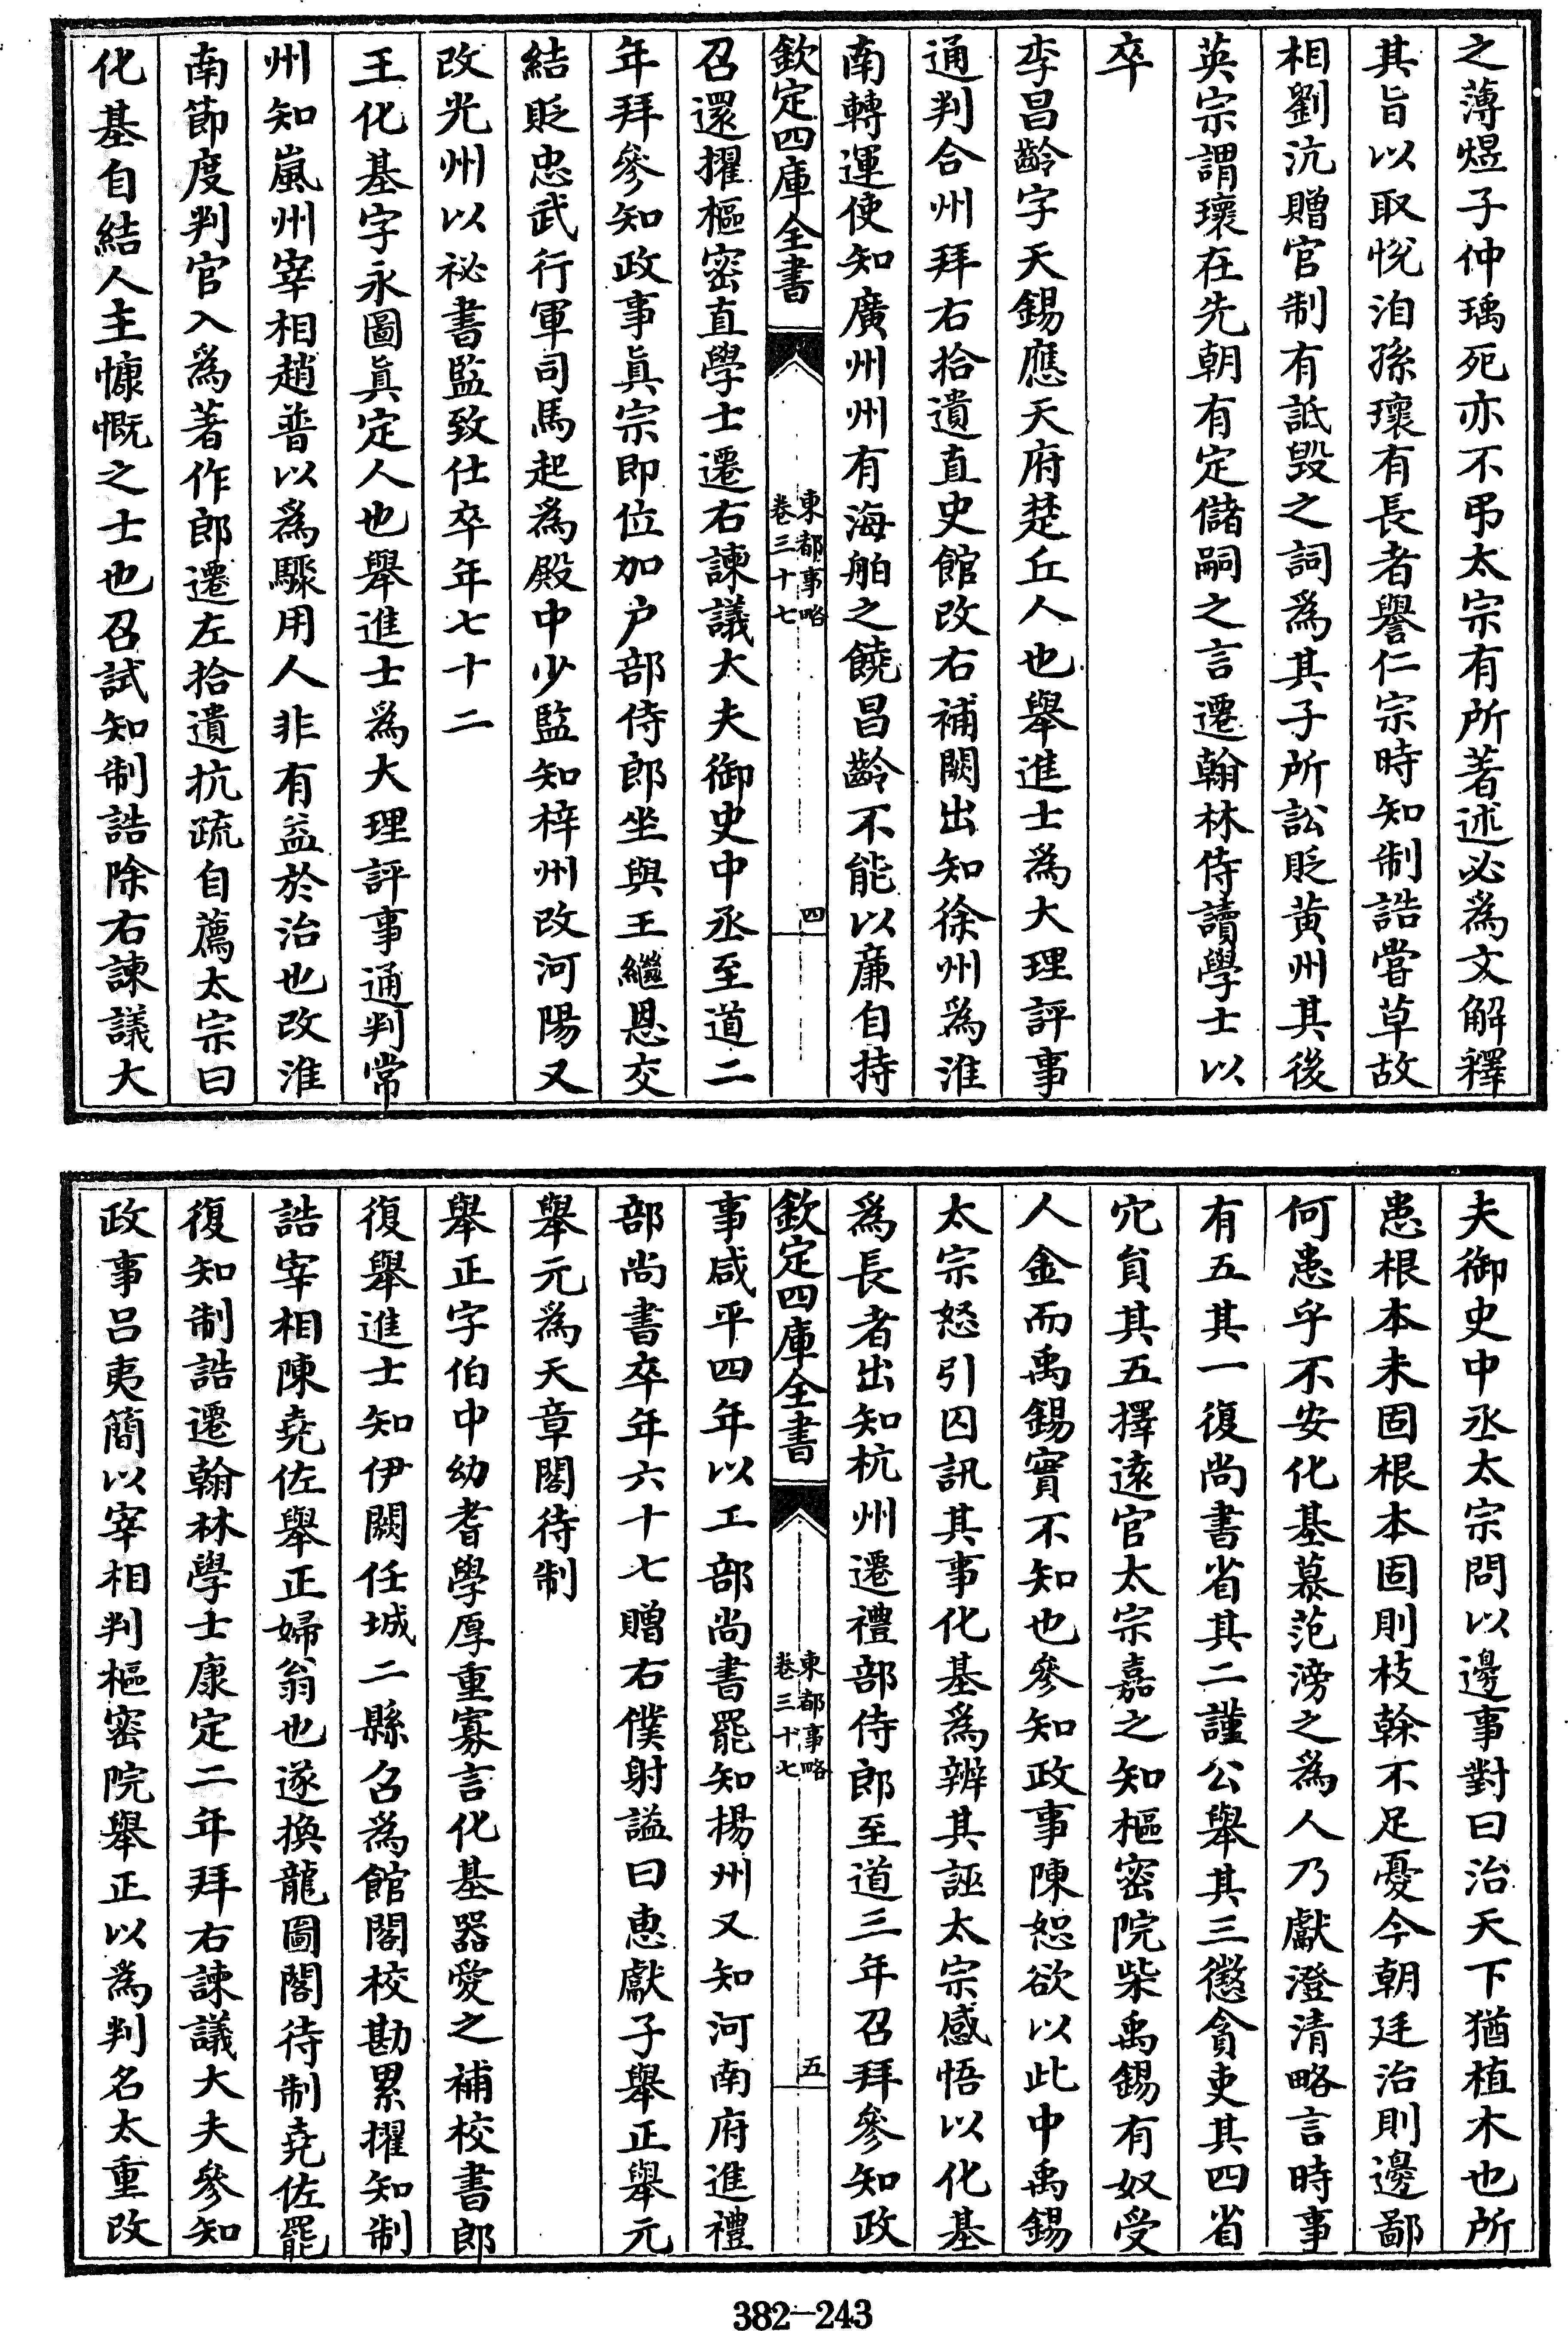 之薄煜子仲瑀死亦不弔太宗有所著述必為文解釋
其旨以取悅洎孫瓌有長者譽仁宗時知制誥嘗草故
相劉沆贈官制有詆毀之詞為其子所訟貶黄州其後
英宗謂瓌在先朝有定儲嗣之言遷翰林侍讀學士以
卒
李昌齡字天錫應天府楚丘人也舉進士為大理評事
通判合州拜右拾遺直史館改右補闕出知徐州為淮
南轉運使知廣州州有海舶之饒昌齡不能以廉自持
欽定四庫全書
東都事略
卷三十七
四
召還擢樞密直學士遷右諫議大夫御史中丞至道二
年拜參知政事真宗即位加户部侍郎坐與王繼恩交
結貶忠武行軍司馬起為殿中少監知梓州改河陽又
改光州以祕書監致仕卒年七十二
王化基字永圖真定人也舉進士為大理評事通判常
州知嵐州宰相趙普以為驟用人非有益於治也改淮
南節度判官入為著作郎遷左拾遺抗疏自薦太宗曰
化基自結人主慷慨之士也召試知制誥除右諫議大
夫御史中丞太宗問以邊事對曰治天下猶植木也所
患根本未固根本固則枝榦不足憂今朝廷治則邊鄙
何患乎不安化基慕范滂之為人乃獻澄清略言時事
有五其一復尚書省其二謹公舉其三懲貪吏其四省
宂員其五擇遠官太宗嘉之知樞密院柴禹錫有奴受
人金而禹錫實不知也參知政事陳恕欲以此中禹錫
太宗怒引囚訊其事化基為辨其誣太宗感悟以化基
為長者出知杭州遷禮部侍郎至道三年召拜參知政
欽定四庫全書
東都事略
卷三十七
五
事咸平四年以工部尚書罷知揚州又知河南府進禮
部尚書卒年六十七贈右僕射謚曰惠獻子舉正舉元
舉元為天章閣待制
舉正字伯中幼耆學厚重寡言化基器愛之補校書郎
復舉進士知伊闕任城二縣召為館閣校勘累擢知制
誥宰相陳堯佐舉正婦翁也遂換龍圖閣待制堯佐罷
復知制誥遷翰林學士康定二年拜右諫議大夫參知
政事呂夷簡以宰相判樞密院舉正以為判名太重改
382-243